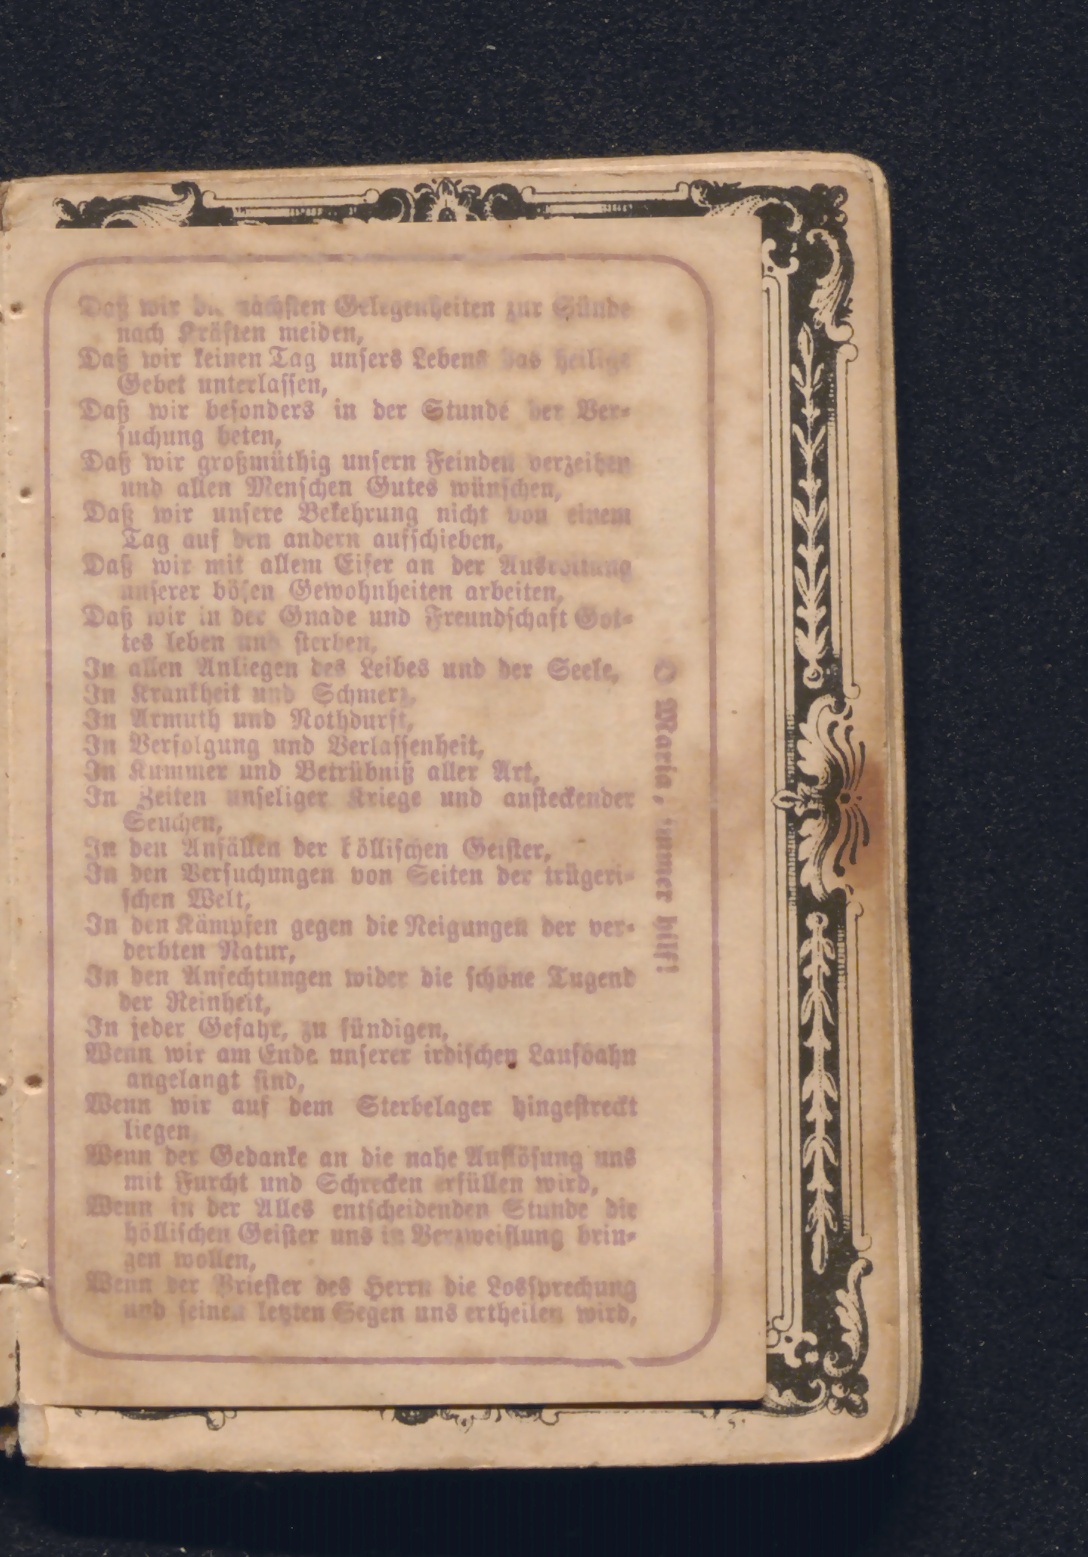 Daß wir die nächsten Gelegenheiten zur Sünde
nach Kräften meiden,
Daß wir keinen Tag unsers Lebens das heilige
Gebet unterlassen,
Daß wir besonders in der Stunde der Ver-
suchung beten,
Daß wir großmüthig unsern Feinden verzeihen
und allen Menschen Gutes wünschen,
Daß wir unsere Bekehrung nicht von einem
Tag auf den andern aufschieben,
Daß wir mit allem Eifer an der Ausrottung
unserer bösen Gewohnheiten arbeiten,
Daß wir in der Gnade und Freundschaft Got-
tes leben und sterben,
In allen Anliegen des Leibes und der Seele,
In Krankheit und Schmerz,
In Armuth und Nothdurft,
In Verfolgung und Verlassenheit,
In Kummer und Betrübniß aller Art,
In Zeiten unseliger Kriege und ansteckender
Seuchen,
In den Anfällen der höllischen Geister,
In den Versuchungen von Seiten der trügeri-
schen Welt,
In den Kämpfen gegen die Neigungen der ver-
derbten Natur,
In den Anfechtungen wider die schöne Tugend
der Reinheit,
In jeder Gefahr, zu sündigen,
Wenn wir am Ende unserer irdischen Laufbahn
angelangt sind,
Wenn wir auf dem Sterbelager hingestreckt
liegen,
Wenn der Gedanke an die nahe Auflösung uns
mit Furcht und Schrecken erfüllen wird,
Wenn in der Alles entscheidenden Stunde die
höllischen Geister uns in Verzweiflung brin-
gen wollen,
Wenn der Priester des Herrn die Lossprechung
und seinen letzten Segen uns ertheilen wird,
O Maria, immer hilf!